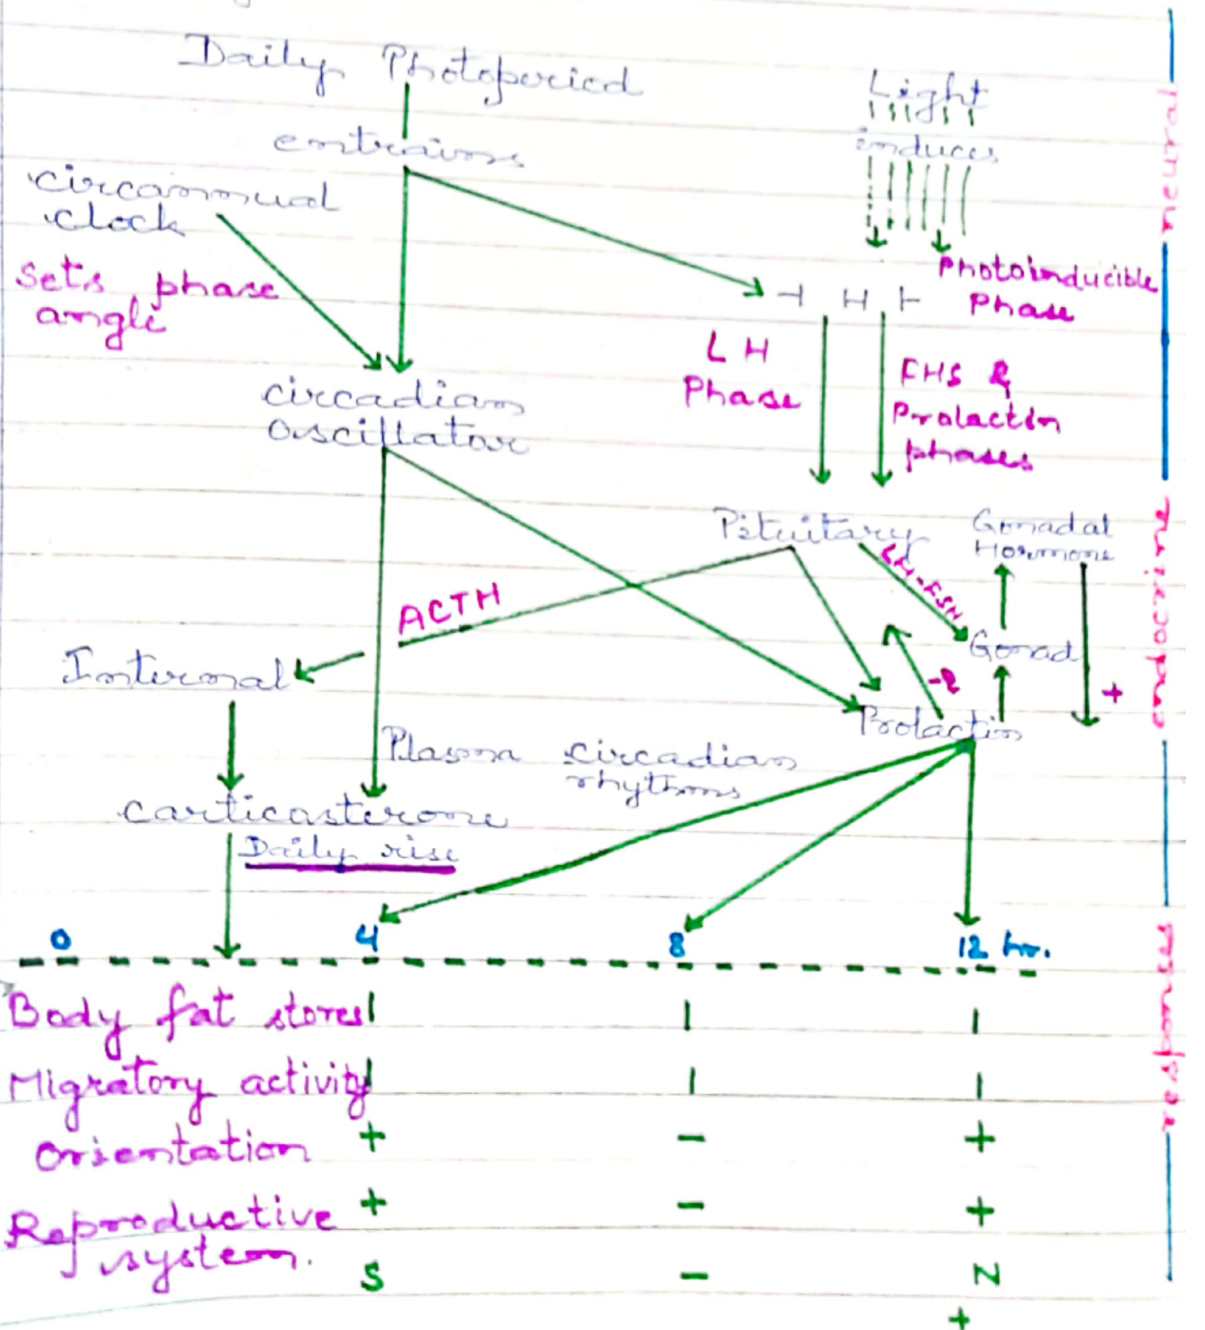 Daily Photoperiod
Light
entrains
induces
circannual
clock
Sets phase
angle
Photoinducible
Phase
H
LH
Phase
FHS &
Prolactin
phases
circadian
oscillator
Pituitary
Gonadal
Hormone
LH-FSH
ACTH
Gonad
Internal
+
Prolactin
Plasma circadian
rhythms
carticasterone
Daily rise
0 4 8 12 hr.
Body fat stores | | |
Migratory activity | | |
orientation + - +
Reproductive + - +
system.
S - N
+
neural
endocrine
responses